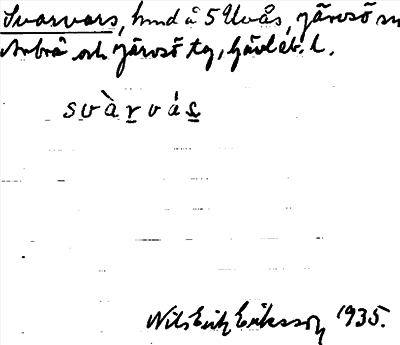 Svarvars, hmd å 5 Uvås, Järvsö sn
Arbrå och Järvsö tg, Gävleb. l.
svàrvás
Nils Erik Eriksson 1935.